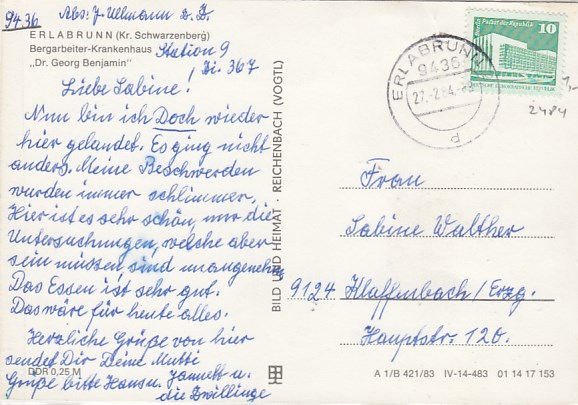 9436 Abs: J. Ullmann z. Z.
ERLABRUNN (Kr. Schwarzenberg)
Bergarbeiter-Krankenhaus Station 9
„Dr. Georg Benjamin" Zi. 367
Liebe Sabine!
Nun bin ich Doch wieder
hier gelandet. Es ging nicht
anders. Meine Beschwerden
wurden immer schlimmer.
Hier ist es sehr schön, nur die
Untersuchungen, welche aber
sein müssen, sind unangenehm
Das Essen ist sehr gut.
Das wäre für heute alles.
Herzliche Grüße von hier
sendet Dir Deine Mutti
Grüße bitte Hans u. Jannett u.
die Zwillinge
DDR 0,25 M
BILD UND HEIMAT · REICHENBACH (VOGTL)
ERLABRUNN
9436
27.-2.84.
d
Palast der Republik
10
2484
Frau
Sabine Walther
9124 Klaffenbach/Erzg.
Hauptstr. 120.
A 1/B 421/83 IV-14-483 01 14 17 153